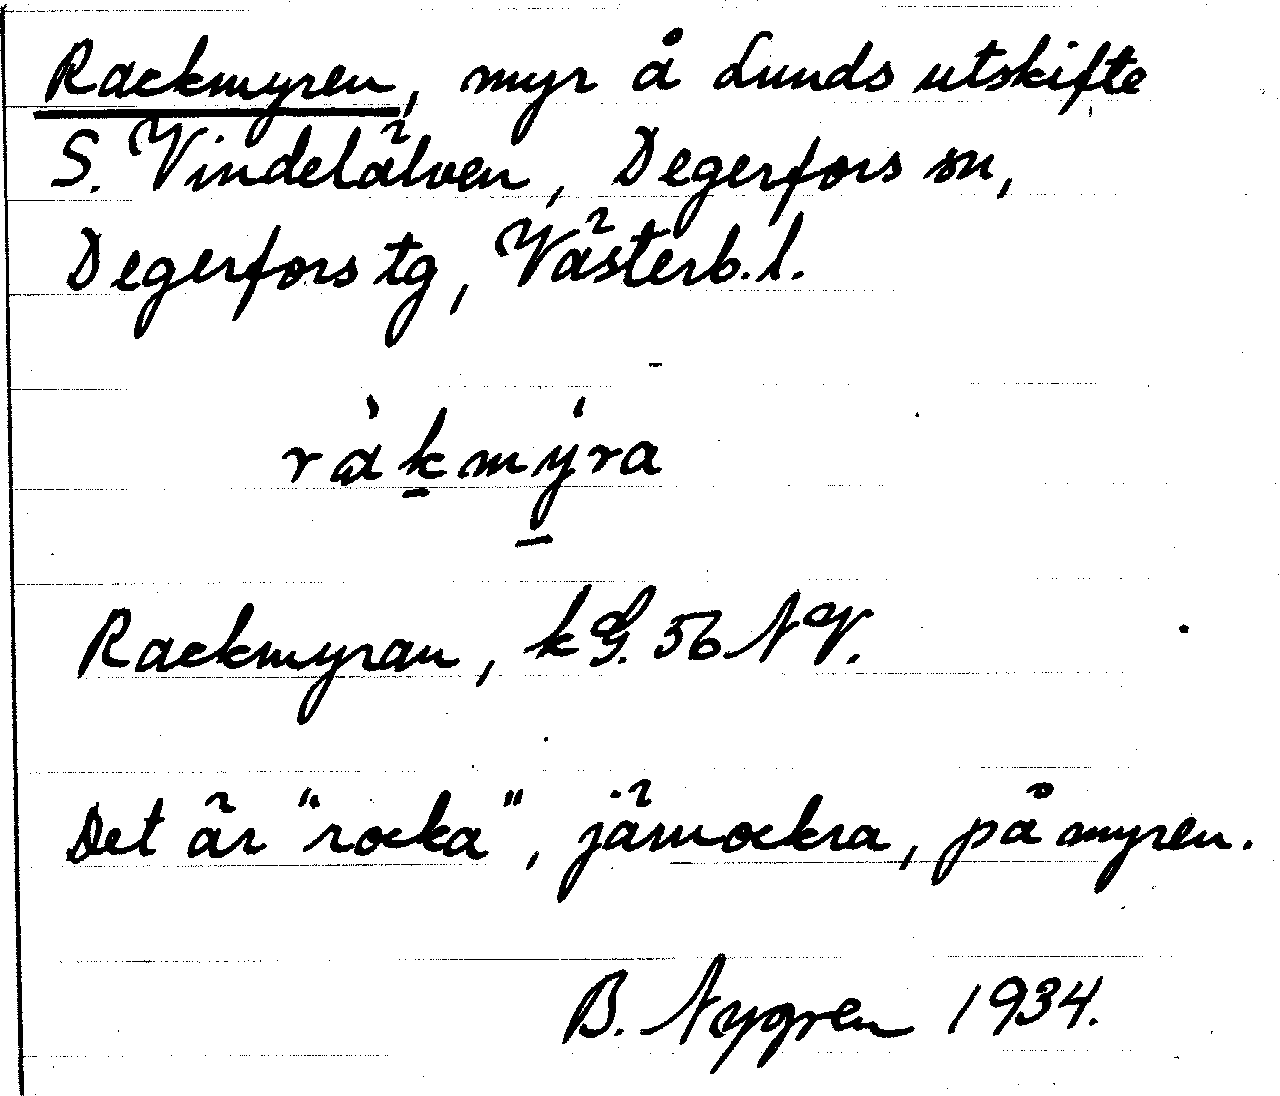 Rackmyren, myr å Lunds utskifte
S. Vindelälven, Degerfors sn,
Degerfors tg, Västerb. l.
ràkmýra
Rackmyran, kG. 56 NV.
Det är "rocka", järnockra, på myren.
B. Nygren 1934.